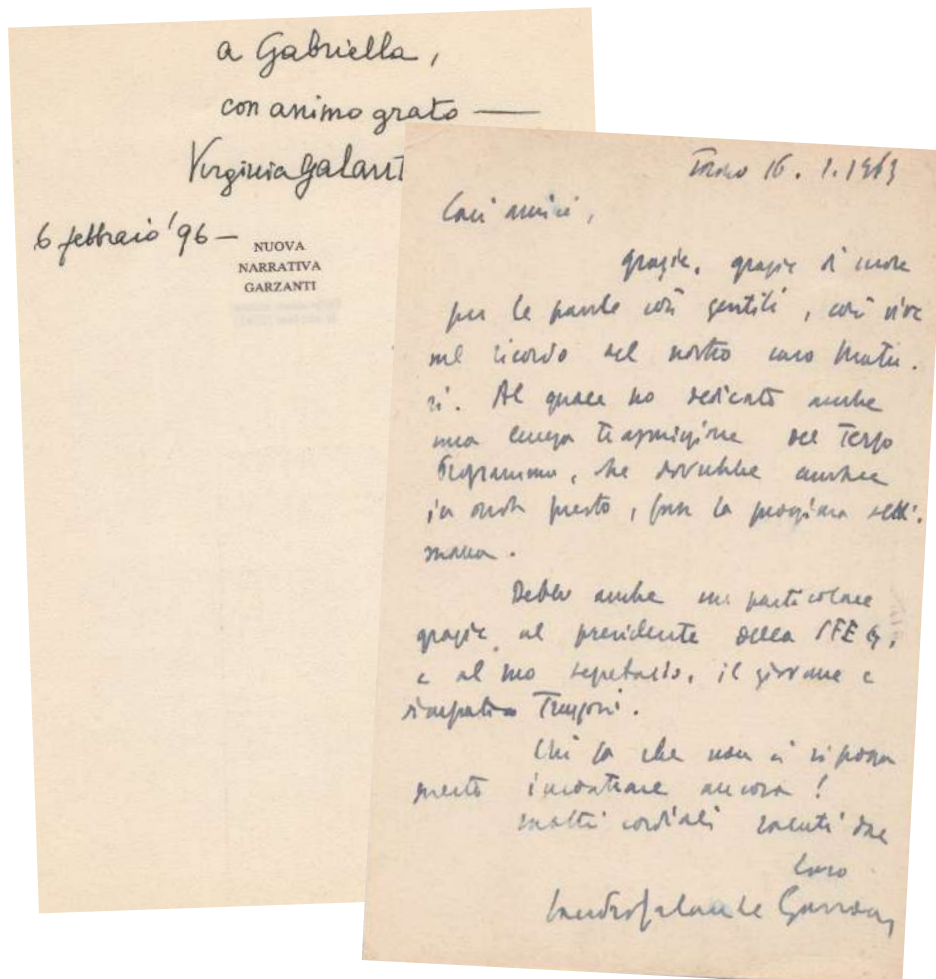 a Gabriella,
con animo grato —
Virginia Galant
6 febbraio '96 —
NUOVA
NARRATIVA
GARZANTI
Torino 16. 1. 1963
Cari amici,
grazie, grazie di cuore
per le parole così gentili, così vive
nel ricordo del nostro caro Matu.
ri. Al quale ho dedicato anche
una lunga trasmissione del Terzo
Programma, che dovrebbe andare
in onda presto, forse la prossima setti.
mana.
Debbo anche un particolare
grazie al presidente della
e al suo segretario, il giovane e
simpatico
Chi sa che non ci si possa
presto incontrare ancora!
molti cordiali saluti dal
loro
Galante Garrone